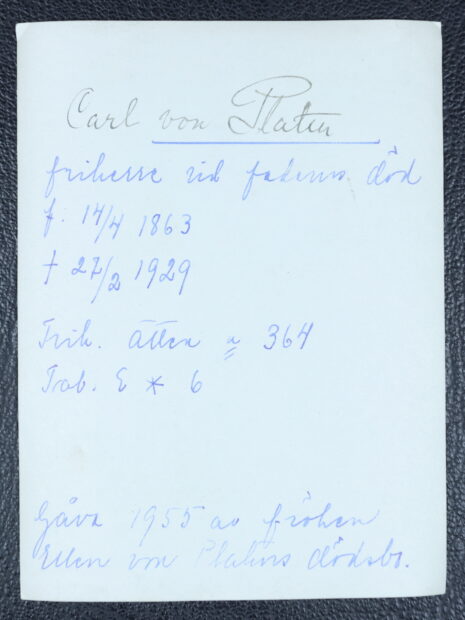 Carl von Platen
friherre vid faderns död
f. 14/4 1863
† 27/2 1929
Frih. ätten n 364
Tab. E * 6
Gåva 1955 av fröken
Ellen von Platens dödsbo.